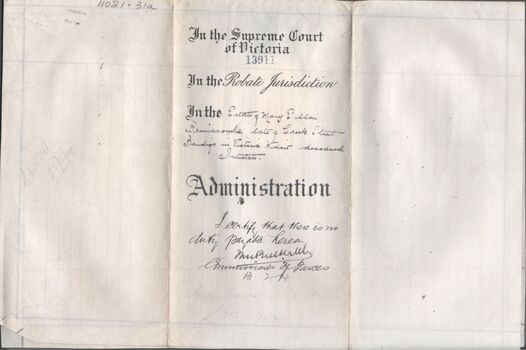 11081.31a
In the Supreme Court
of Victoria
13911
In the Probate Jurisdiction
In the Estate of Mary Ellen
late of Creek Street
Bendigo in Victoria Widow deceased
Intestate.
Administration
I certify that there is no
duty payable hereon.
Commissioner of Taxes